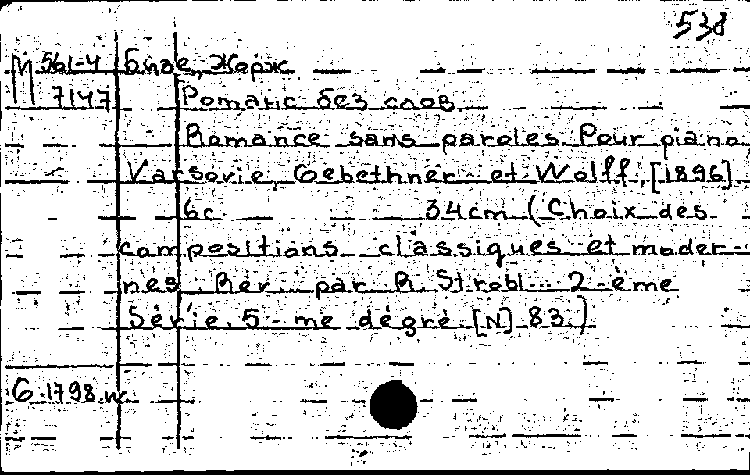 538
М 561-4 Бизе, Жорж
7147 Романс без слов
Romance sans paroles. Pour piano
Varsovie, Gebethner et Wolff, [1896].
6c 34cm (Choix des
compositions classiques et moder-
nes. Rev. par R. Strobl. 2-ème
Série. 5-me dégré. [N] 83.)
6.1798.м